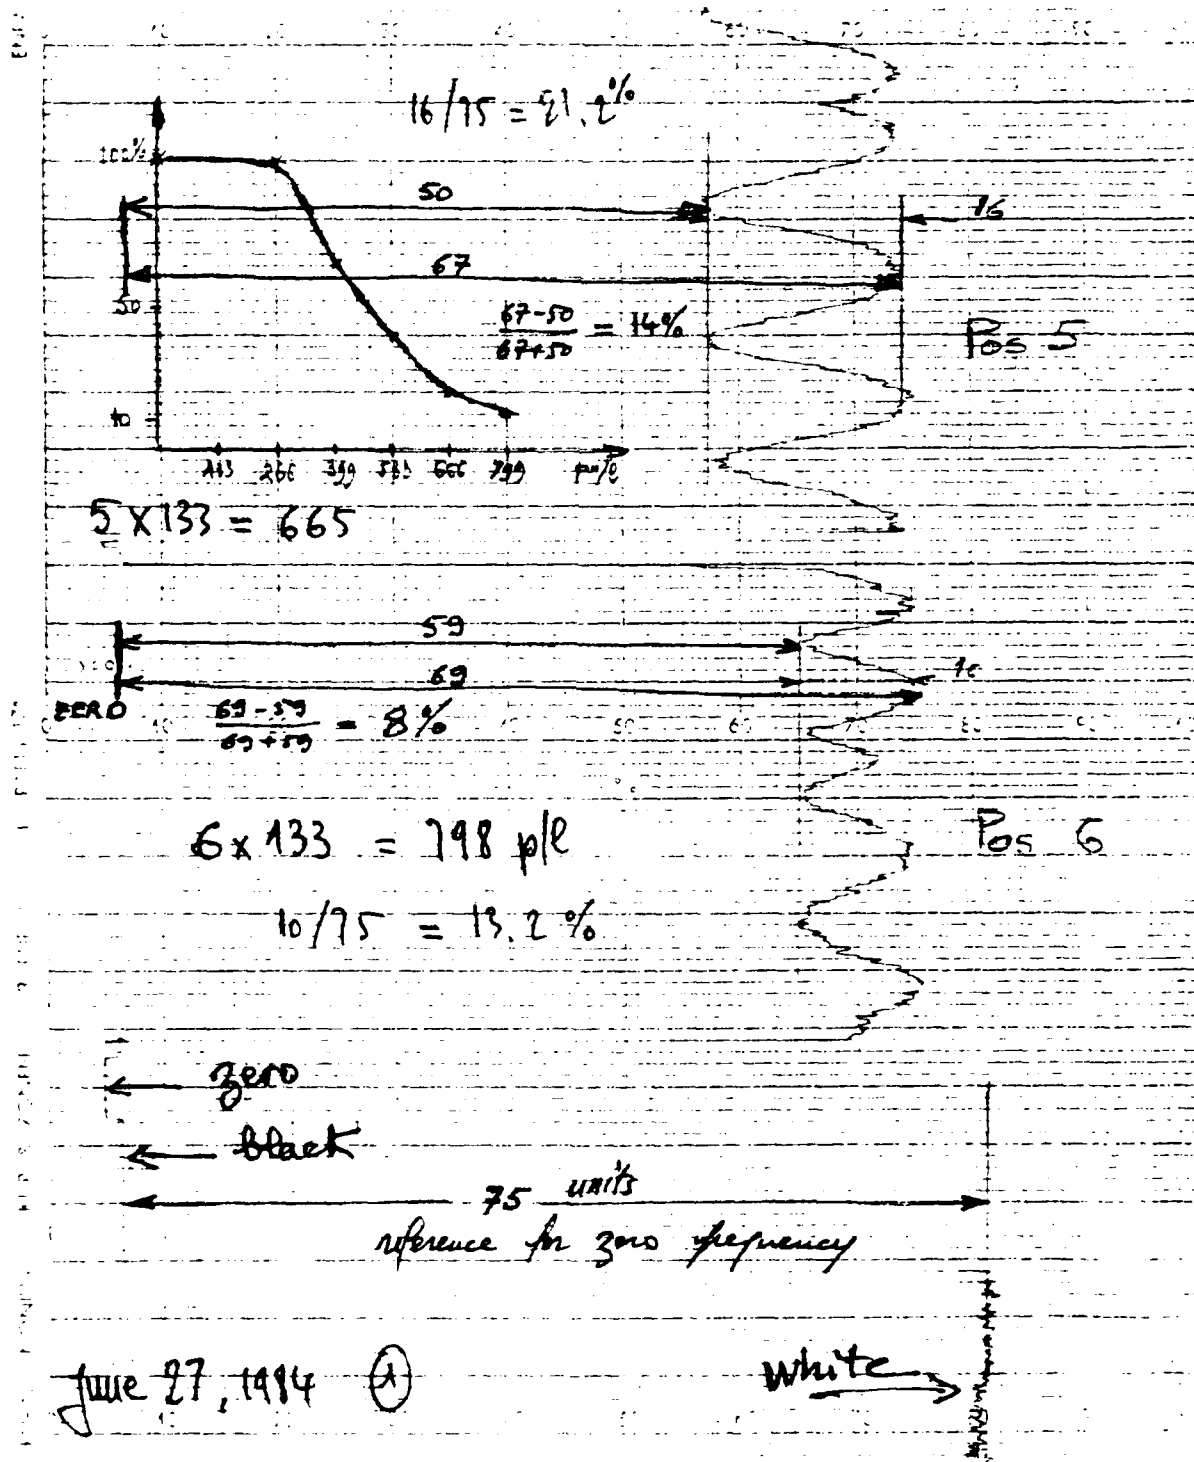 16/75 = 21.2%
100%
50
16
67
50
67-50
67+50
= 14%
Pos 5
10
133 266 399 533 666 799 pn/l
5 x 133 = 665
59
69
10
ZERO
69-59
69+59
= 8%
50 60 70 80
6 x 133 = 798 p/l
Pos 6
10/75 = 13.2%
zero
black
75 units
reference for zero frequency
June 27, 1984 1
white